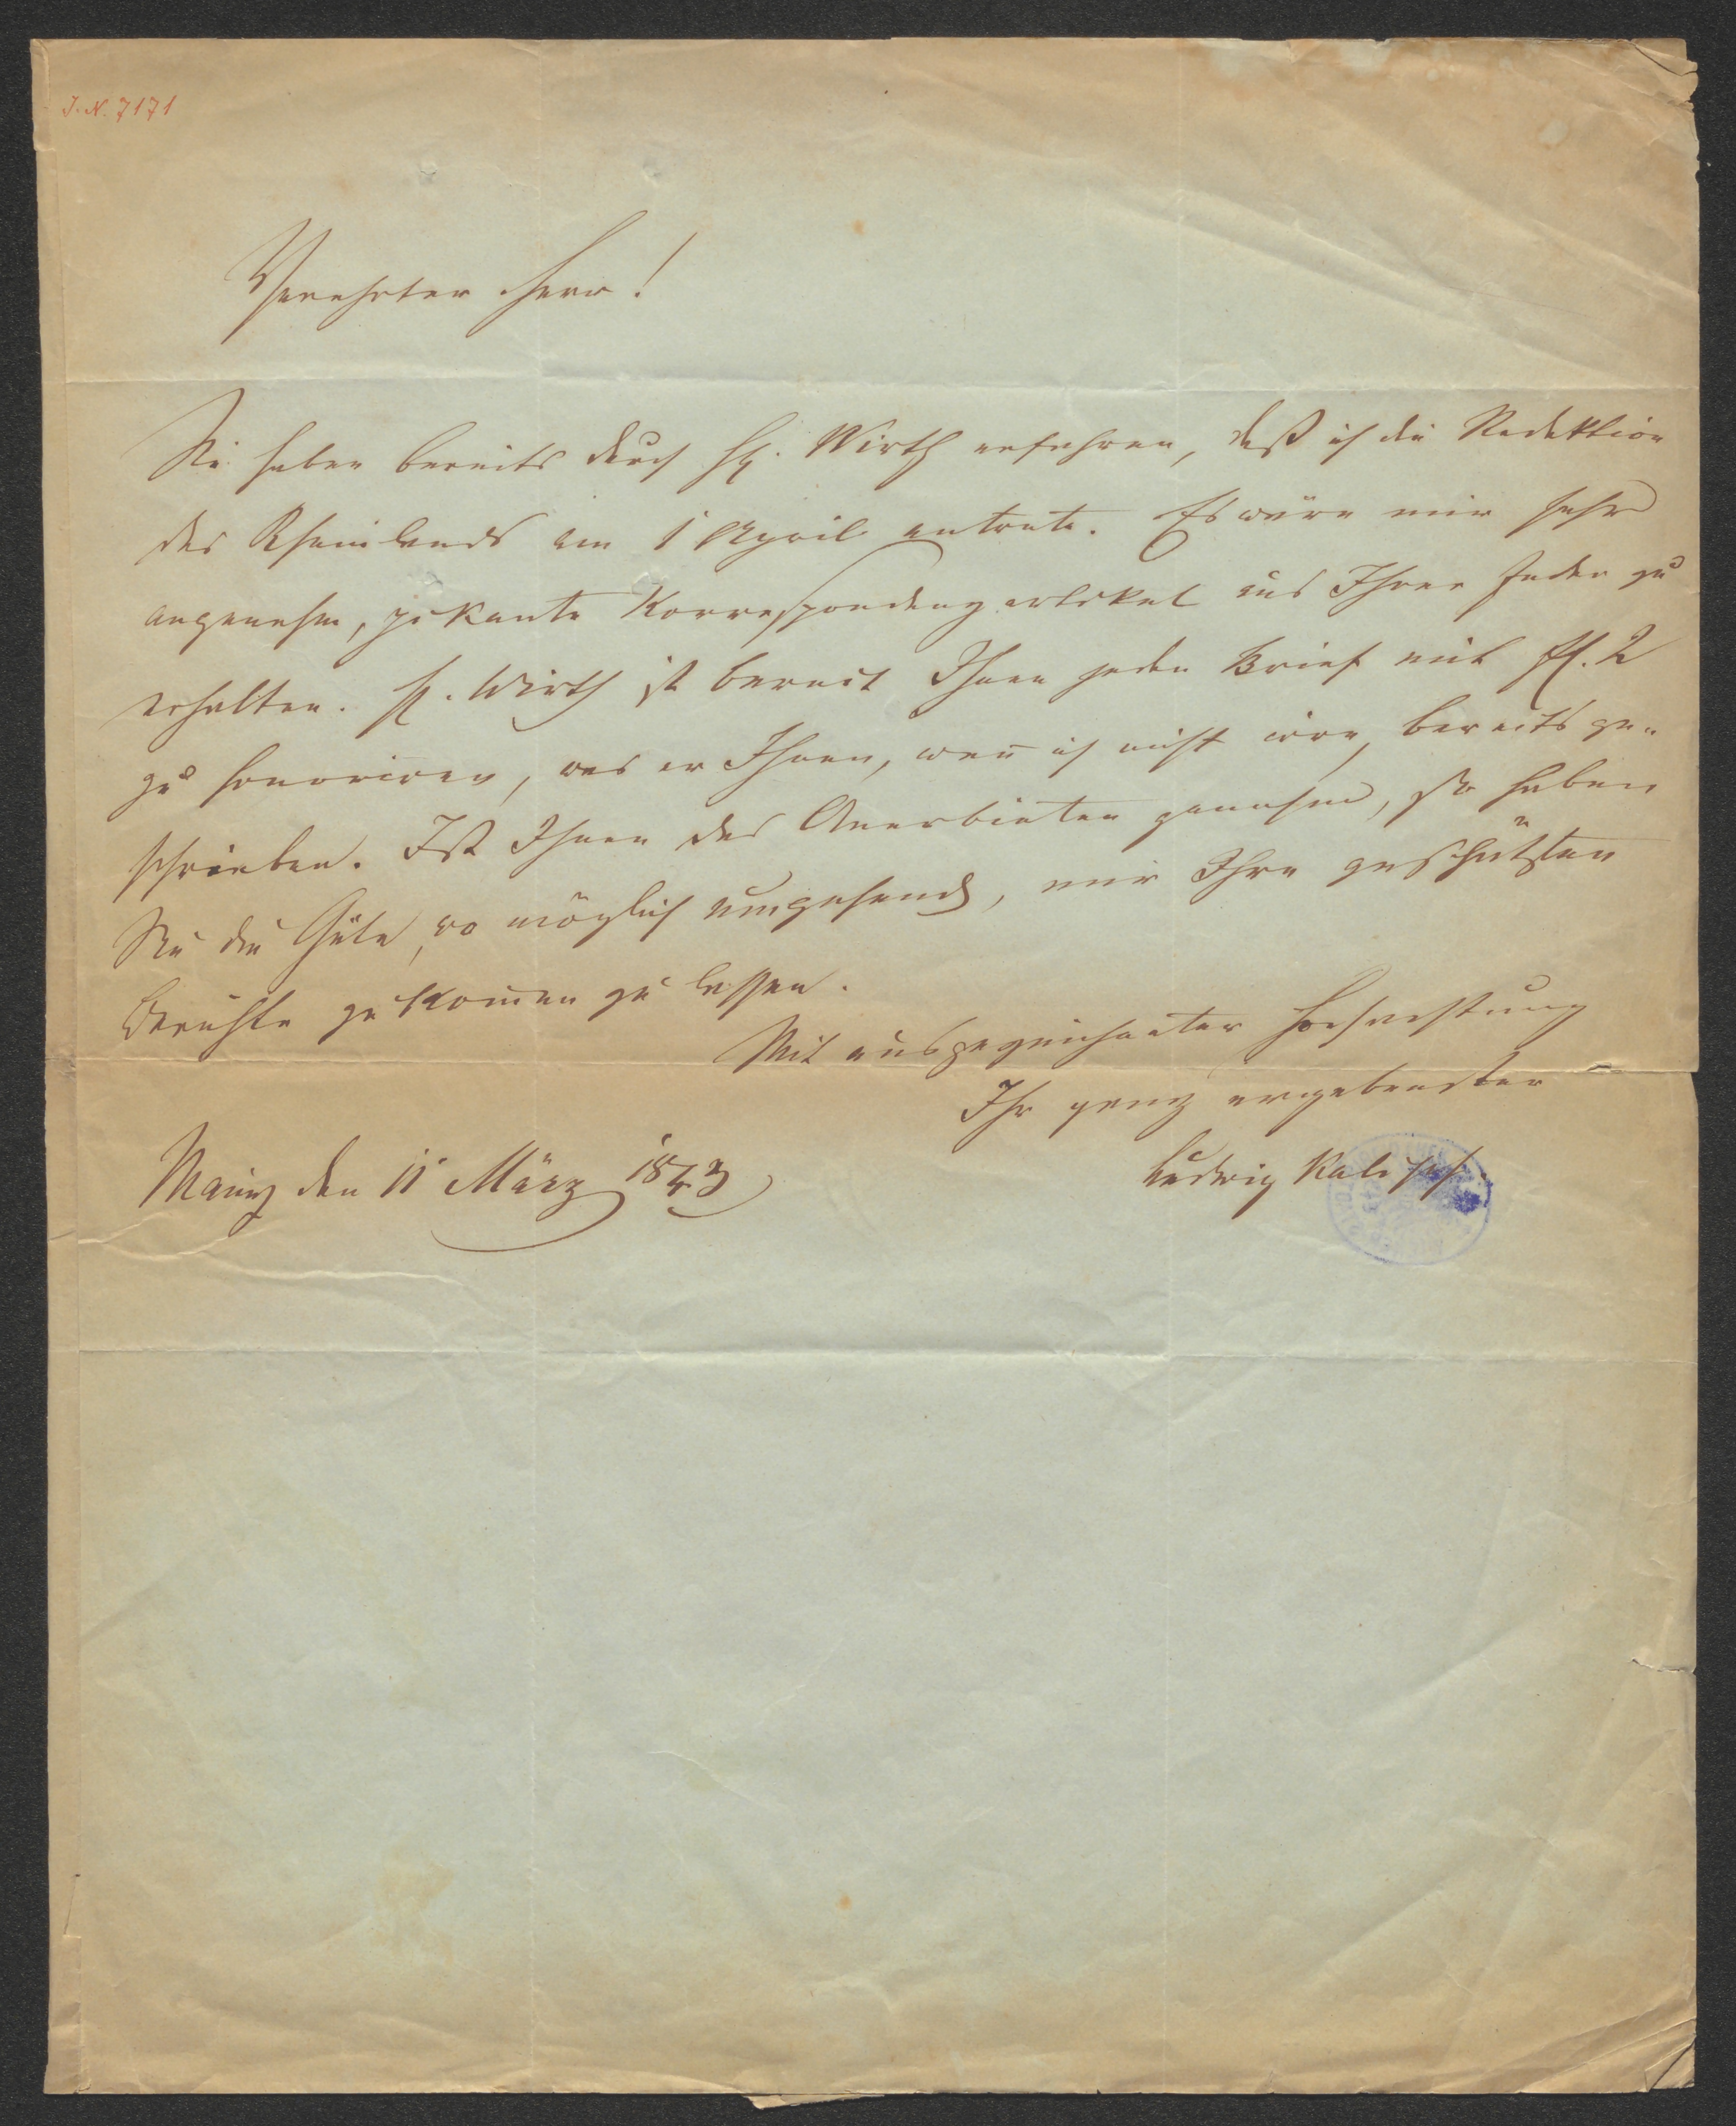 J. N. 7171
Verehrter Herr!
Sie haben bereits durch H. Wirth erfahren, daß ich die Redaktion
des Rheinlands am 1 April antrete. Es wäre mir sehr
angenehm, pikante Korrespondenzartikel aus Ihrer Feder zu
erhalten. H. Wirth ist bereit Ihnen jeden Brief mit fl. 2
zu honoriren, was er Ihnen, wenn ich nicht irre, bereits ge-
schrieben. Ist Ihnen das Anerbieten genehm, so haben
Sie die Güte, wo möglich umgehend, mir Ihre geschätzten
Berichte zukommen zu lassen.
Mit ausgezeichneter Hochachtung
Ihr ganz ergebenster
Ludwig Kalisch
Mainz den 11 März 1843